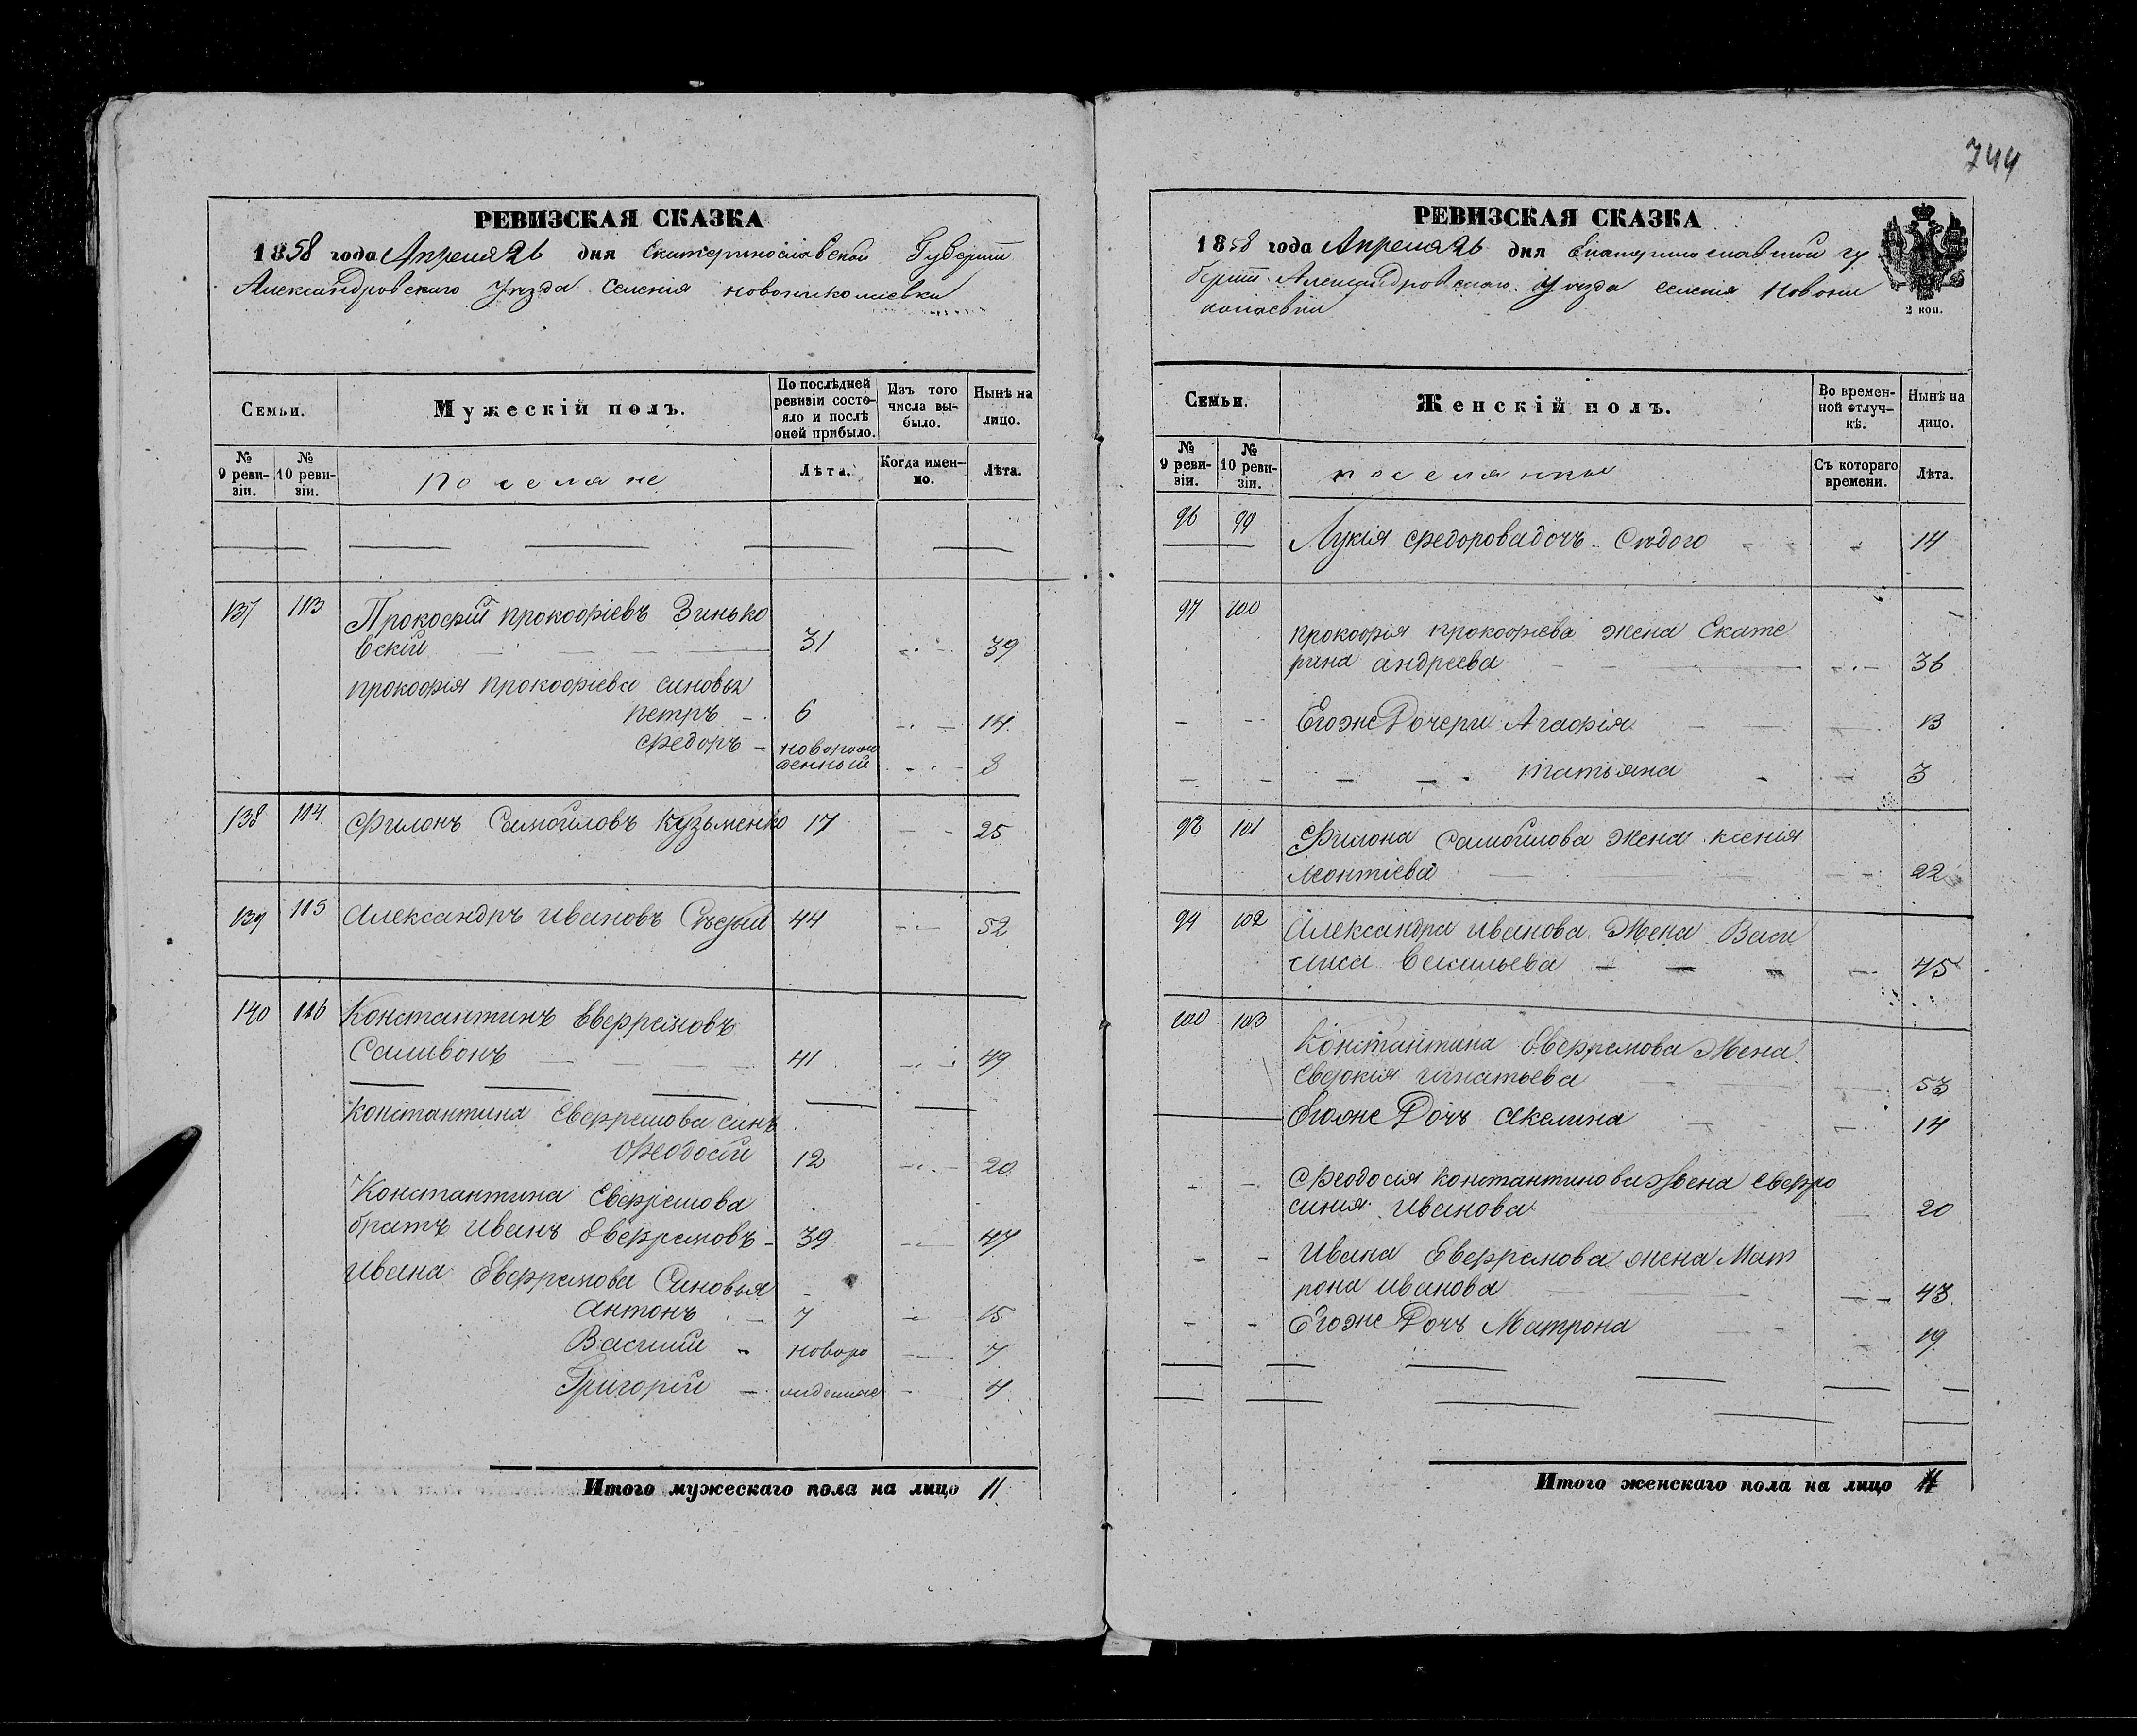 744
РЕВИЗСКАЯ СКАЗКА
1858 года Апреля 26 дня Екатеринославской Губерніи
Александровскаго Уезда Селенія Новониколаевки
Семьи.
Мужескій полъ.
По послѣдней ревизіи состояло и послѣ оной прибыло.
Изъ того числа выбыло.
Нынѣ на лицо.
№ 9 ревизіи.
№ 10 ревизіи.
Поселяне
Лѣта.
Когда именно.
Лѣта.
137 113 Прокофій Прокофіевъ Зинько
вскій 31 39
Прокофія Прокофіева синовья
Петръ 6 14
Федоръ новорож
денный 8
138 114 Филонъ Самойловъ Кузьменко 17 25
139 115 Александръ Ивановъ 44 52
140 116 Константинъ Евфремовъ
Саливонъ 41 49
Константина Евфремова синъ
Феодосій 12 20
Константина Евфремова
братъ Иванъ Евфремовъ 39 47
Ивана Евфремова Синовья
Антонъ 7 15
Василий новоро 7
Григорій 4
Итого мужескаго пола на лицо 11
РЕВИЗСКАЯ СКАЗКА
1858 года Апреля 26 дня Екатеринославской гу
берніи Александровскаго Уезда селенія Новони
колаевки
2 коп.
Семьи.
Женскій полъ.
Во временной отлучкѣ.
Нынѣ на лицо.
№ 9 ревизіи.
№ 10 ревизіи.
поселянки
Съ котораго времени.
Лѣта.
96 99 Лукія Федорова дочь Сѣдого 14
97 100
Прокофія Прокофіева жена Екате
рина Андреева 36
Егоже Дочери Агафія 13
Татьяна 3
98 101 Филона Самойлова Жена Ксенія
Леонтіева 22
99 102 Александра Иванова Жена Васи
лиса Васильева 45
100 103 Константина Евфремова Жена
Евдокія Игнатьева 53
Егоже Дочъ Акелина 14
Феодосія Константинова Жена Евфро
синия Иванова 20
Ивана Евфремова жена Мат
рона Иванова 43
Егоже Дочъ Матрона 19
Итого женскаго пола на лицо 11